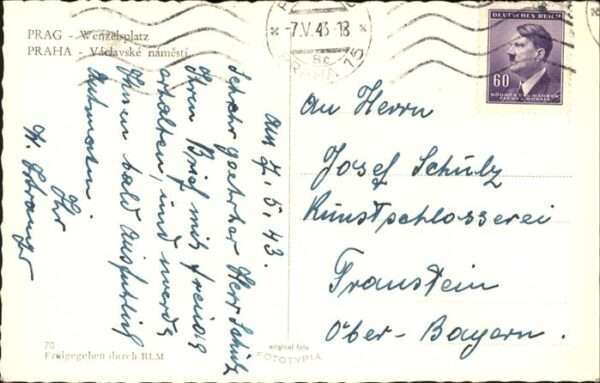 PRAG - Wenzelsplatz
PRAHA - Václavské náměstí
-7.V.43-18
8c
DEUTSCHES REICH
60
BÖHMEN U. MÄHREN
ČECHY A MORAVA
Am 7.5.43.
Sehr geehrter Herr Schülz
Ihren Brief mit Freude
erhalten, und werde
Ihnen bald ausführlich
Antworten.
Ihr
An Herrn
Josef Schülz
Kunstschlosserei
Traunstein
Ober-Bayern.
70
Freigegeben durch RLM
original foto
FOTOTYPIA